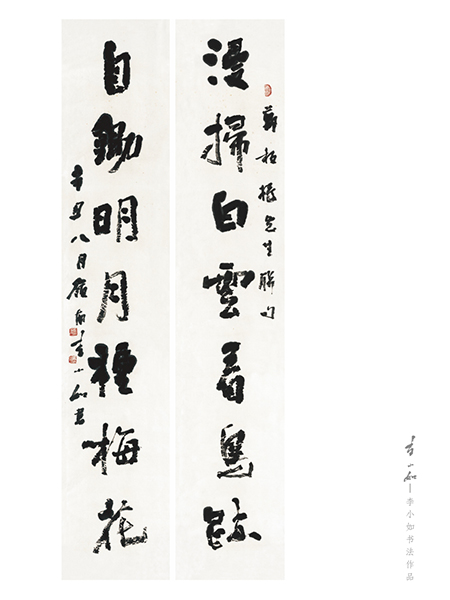 漫掃白雲看鳥跡
鄭板橋先生聯句
自鋤明月種梅花
辛丑八月嶺南李小如書
李小如—李小如书法作品